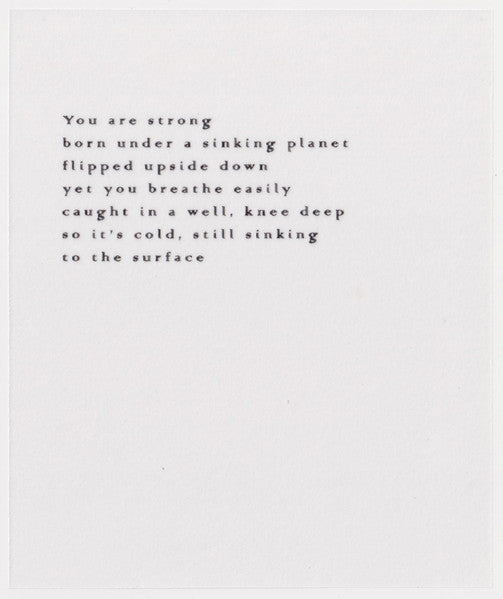 You are strong
born under a sinking planet
flipped upside down
yet you breathe easily
caught in a well, knee deep
so it's cold, still sinking
to the surface